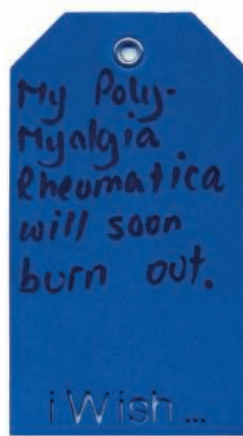 My Poly-
Myalgia
Rheumatica
will soon
burn out.
i Wish...